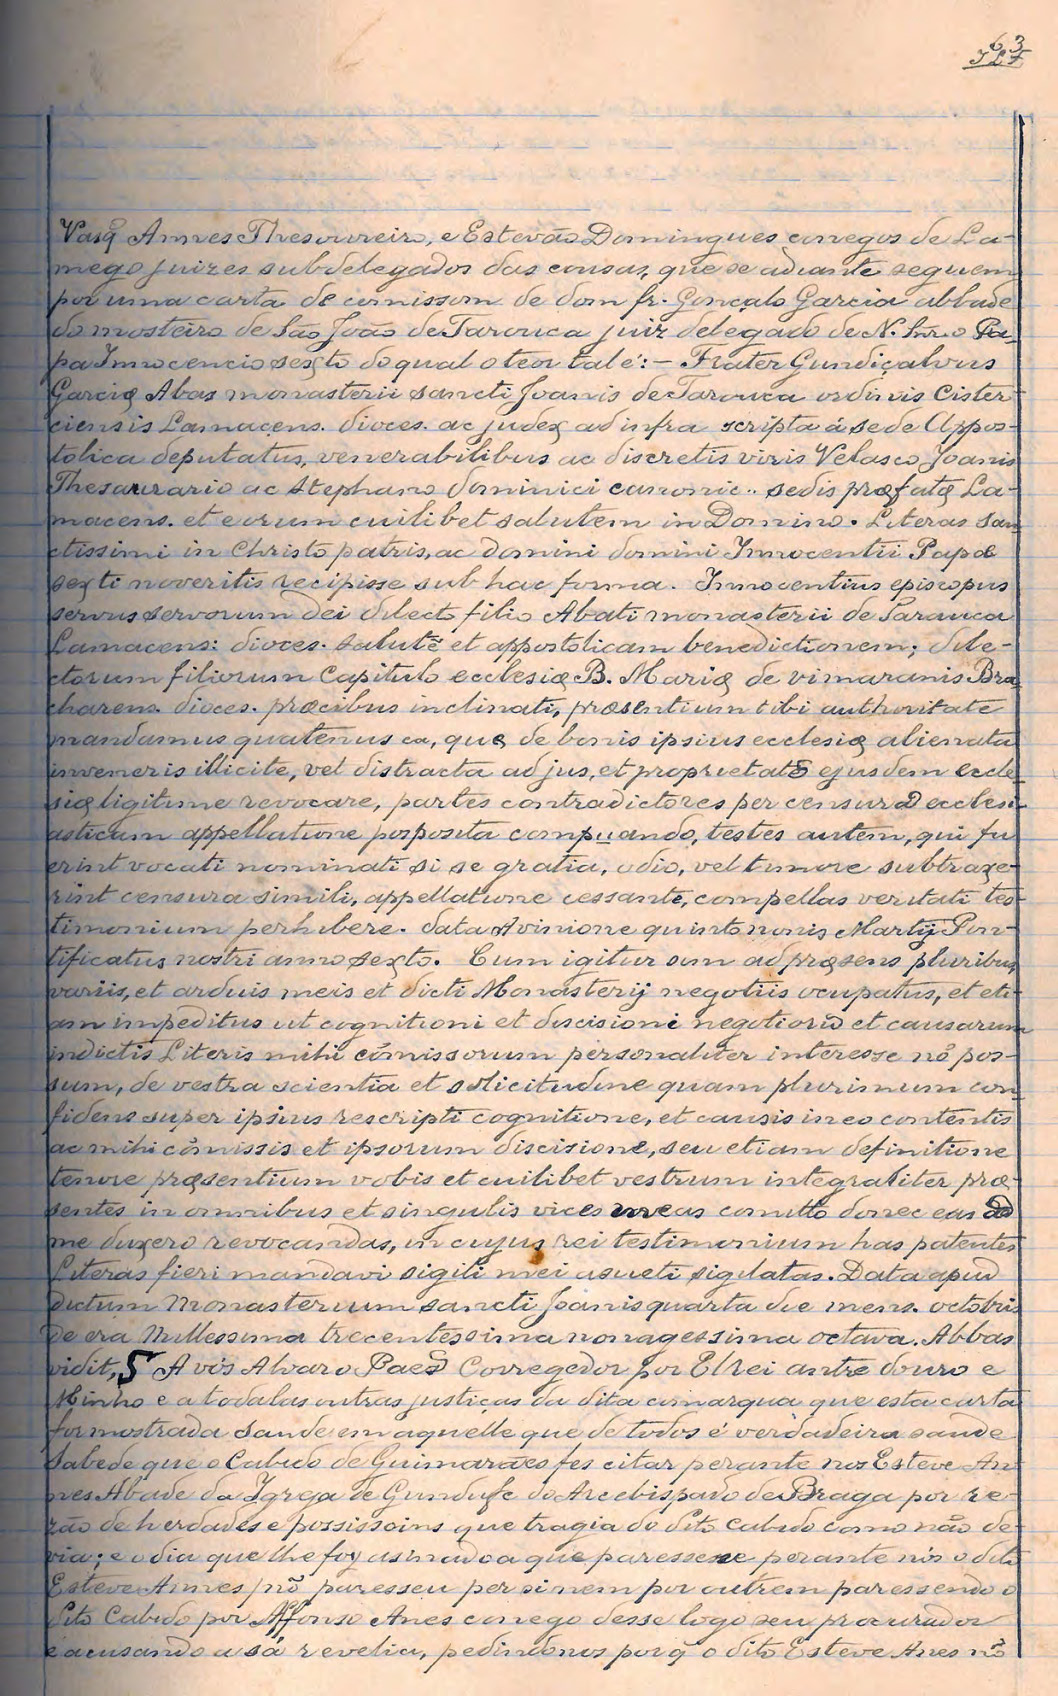 63
Vasq̃ Annes Thesoureiro, e Estevão Domingues conegos de La-
mego juizes subdelegados das cousas, que se adiante seguem
por uma carta de comissom de dom fr. Gonçalo Garcia abbade
do mosteiro de São João de Tarouca juiz delegado de N. Snr. o Pa-
pa Innocencio sexto do qual o teor tal é: — Frater Gundiçalvus
Garciæ Abas monasterii sancti Joanis de Tarouca ordinis Cister-
ciensis Lamacens. dioces. ac judex ad infra scripta á sede Appos-
tolica deputatus, venerabilibus ac discretis viris Velasco Joanis
Thesaurario ac Stephano dominici canonic.. sedis præfatæ La-
macens. et eorum cuilibet salutem in Domino. Literas san-
ctissimi in Christo patris, ac domini domini Innocentii Papæ
sexti noveritis recipisse sub hac forma. Innocentius episcopus
servus servorum Dei dilecto filio Abati monasterii de Tarauca
Lamacens: dioces. salutẽ et appostolicam benedictionem; dile-
ctorum filiorum Capitulo ecclesiæ B. Mariæ de vimaranis Bra-
charens. dioces. præcibus inclinati, præsentium tibi authoritate
mandamus quatenus ea, quæ de bonis ipsius ecclesiæ alienata
inveneris illicite, vel distracta ad jus, et proprietatẽ ejusdem eccle-
siæ ligitime revocare, partes contradictores per censurã ecclesi-
asticam appellatione posposita compuando, testes autem, qui fu
erint vocati nominati si se gratia, odio, vel timore subtraxe-
rint censura simili, appellatione cessante, compellas veritati tes-
timonium perhibere. data Avinione quinto nonis Martij Pon-
tificatus nostri anno sexto. Cum igitur sum ad præsens pluribus
variis, et arduis meis et dicti Monasterij negotiis ocupatus, et eti-
am impeditus ut cognitioni et discisioni negotiorũ et causarum
indictis Literis mihi cõmissorum personaliter interesse nõ pos-
sum, de vestra scientia et solicitudine quam plurimum con
fidens super ipsius rescripti cognitione, et causis in eo contentis
ac mihi cõmissis et ipsorum discisione, seu etiam definitione
tenore præsentium vobis et cuilibet vestrum integraliter præ-
sentes in omnibus et singulis vices meas comitto donec eas ad
me duxero revocandas, in cujus rei testimonium has patentes
Literas fieri mandavi sigili mei usueti sigilatas. Data apud
dictum Monasterium sancti Joanis quarta die mens. octobris
de era Millessima trecentessima nonagessima octava. Abbas
vidit, § A vós Alvaro Paes Corregedor por ElRei antre douro e
Minho e a todalas outras justiças da dita comarqua que esta carta
for mostrada saude em aquelle que de todos é verdadeira saude
Sabede que o Cabido de Guimarães fes citar perante nos Esteve An-
nes Abade da Igreja de Gundufe do Arcebispado de Braga por re-
zão de herdades e possissoins que tragia do dito Cabido como não de-
via; e o dia que lhe foy asinado a que paressesse perante nós o dito
Esteve Annes nõ paresseu per si nem por outrem paressendo o
dito Cabido por Affonso Anes conego desse logo seu procurador
e acusando a sá revelia, pedindonos porq̃ o dito Esteve Anes nõ